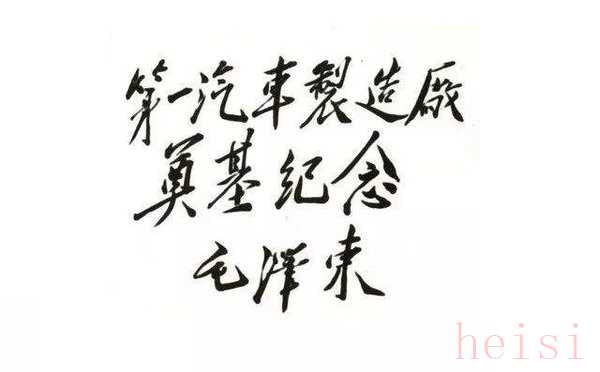 第一汽車製造廠
奠基紀念
毛澤東
heisi